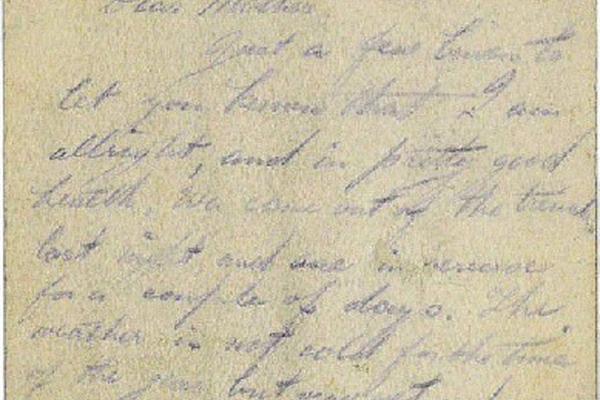 Dear Mother,
Just a few lines to
let you know that I am
allright, and in pretty good
health. We came out of the trench
last night and are in reserve
for a couple of days. The
weather is not cold for the time
of the year but